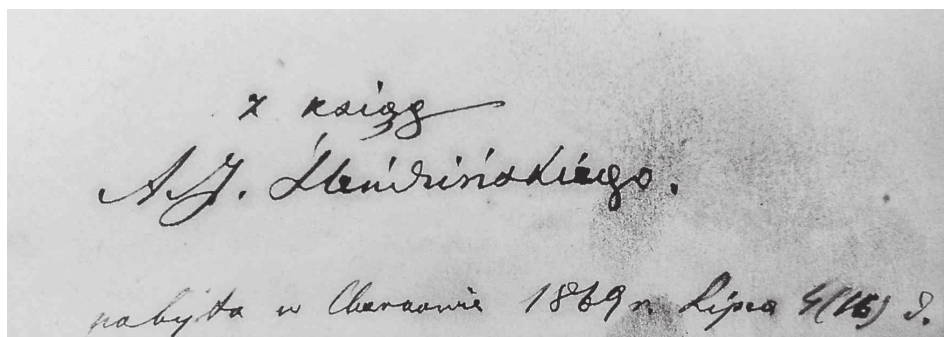 z ksiąg
A. J. Śleńdzińskiego.
nabyta w Charkowie 1869 r. Lipca 4(16) d.